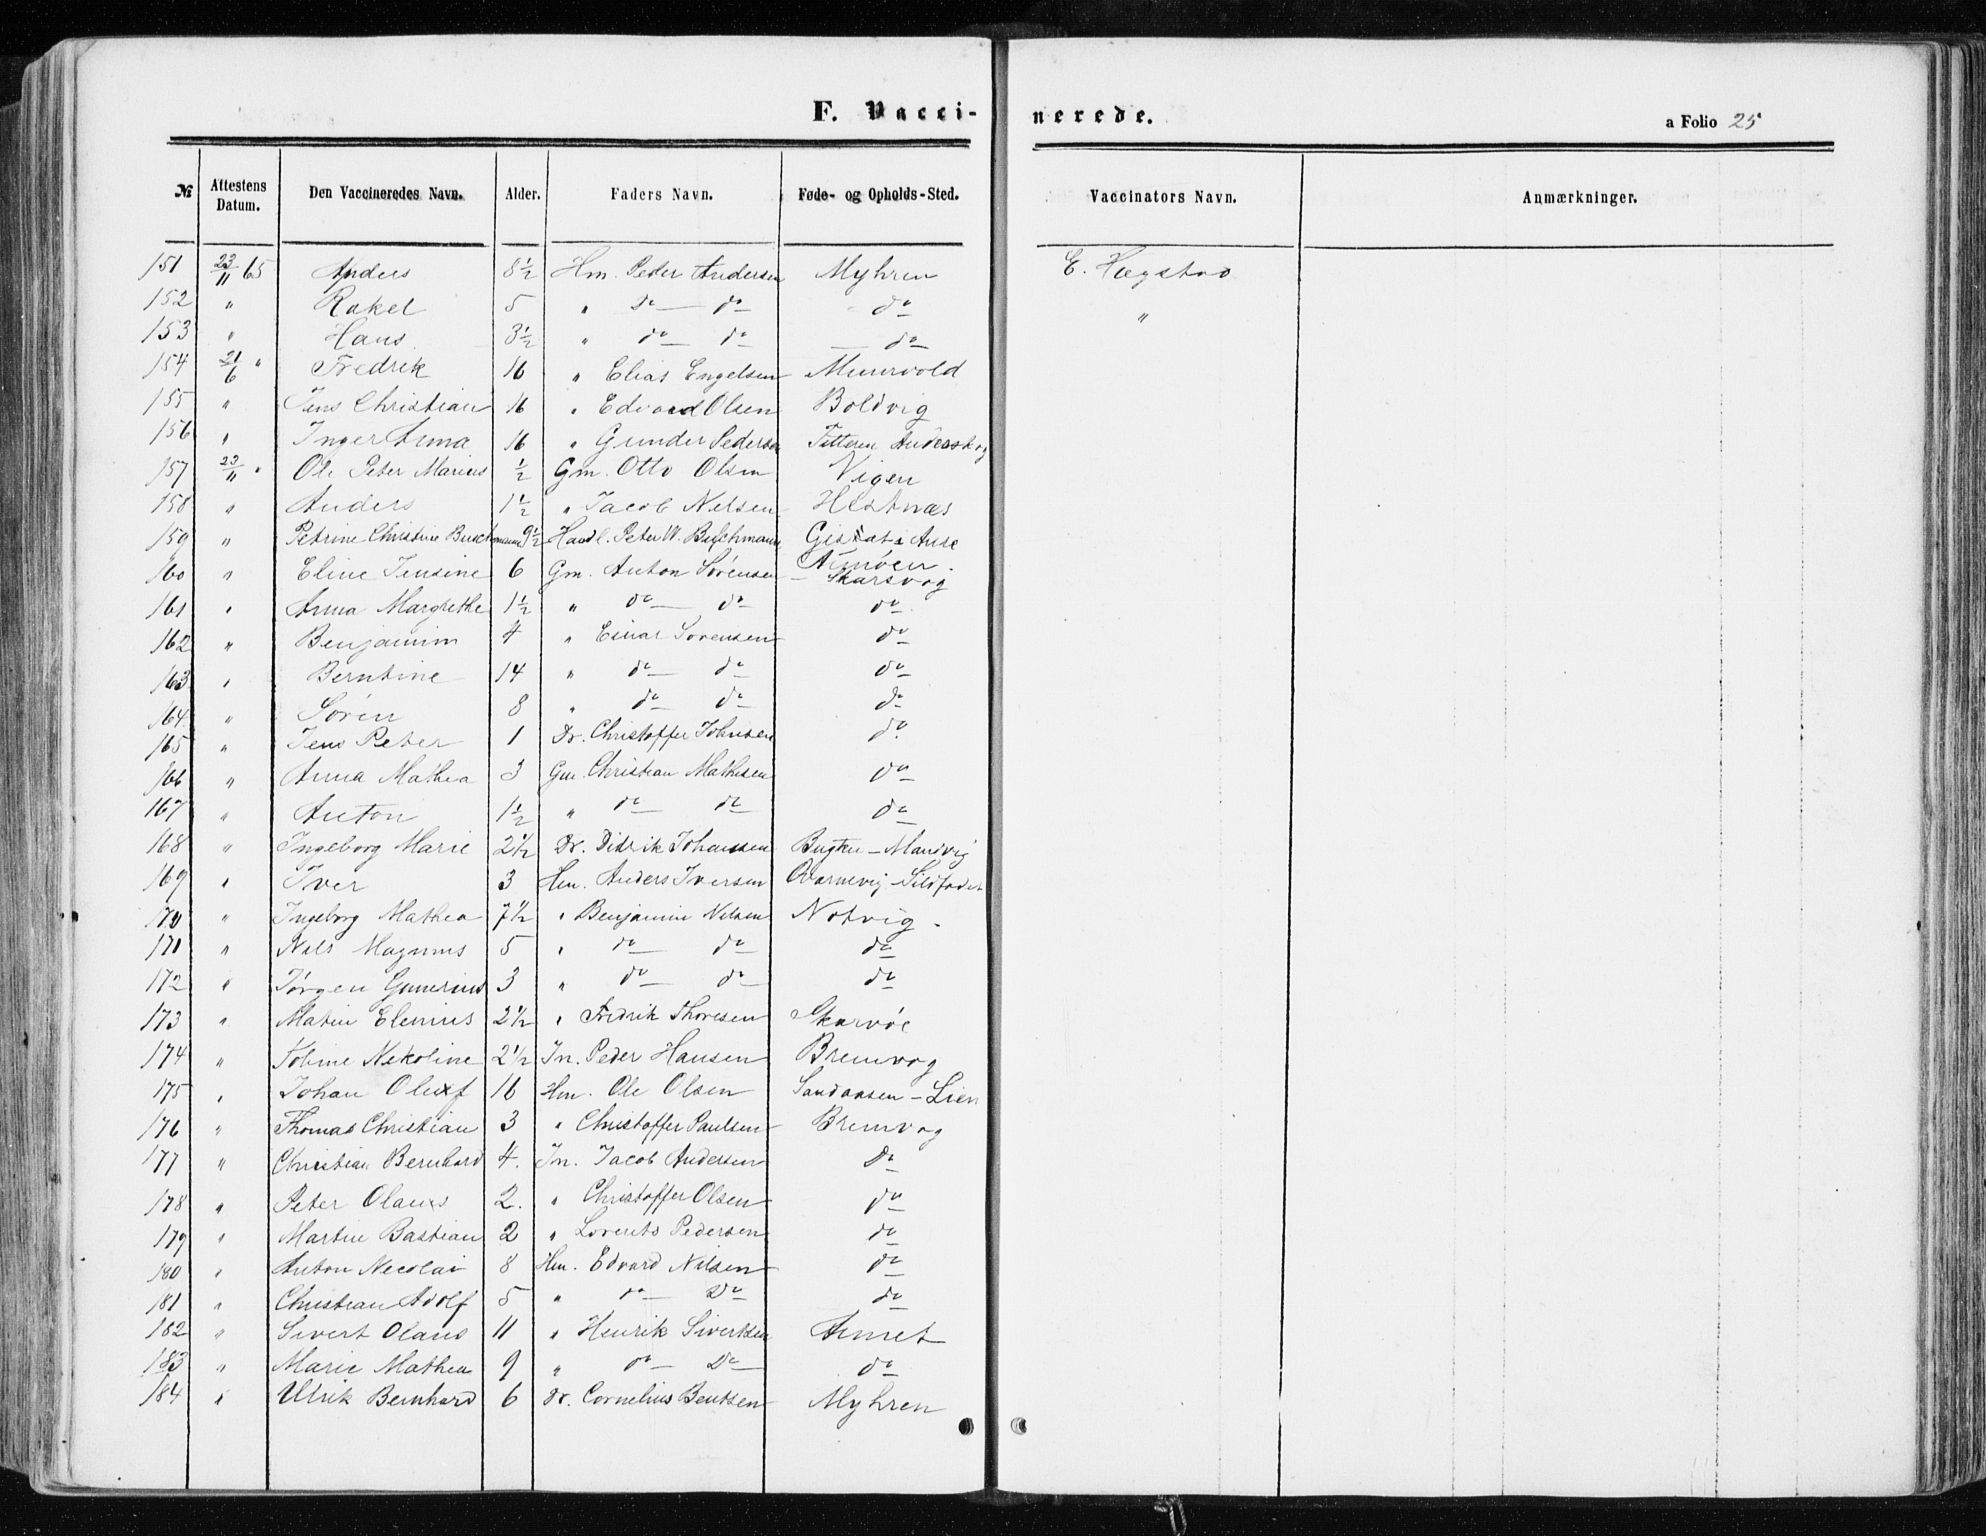 F. Vacci-nerede. a Folio 25
№ Attestens Datum. Den Vaccineredes Navn. Alder. Faders Navn. Føde- og Opholds-Sted. Vaccinators Navn. Anmærkninger.
151 23/11 65 Anders 8½ Hm. Peder Andersen Myhren E. Hægstad
152 " Rakel 5 " do do do
153 " Hans 3½ " do do do "
154 21/6 " Fredrik 16 " Elias Engelsen
155 " Jens Christian 16 " Edvard Olsen Boldvig
156 " Inger Anna 16 " Gunder Pedersen
157 23/11 " Ole Peter Marius ½ Gm. Otto Olsen Vigen
158 " Anders 1½ " Jacob Nilsen Hestnæs
159 " Petrine Christine Buschmann 9½ Handl. Peter W. Buschmann
160 " Eline Jensine 6 Gm. Anton Sørensen Skarsvog
161 " Anna Margrethe 1½ " do do do
162 " Benjamin 4 " Einar Sørensen do
163 " Berntine 14 " do do do
164 " Sørin 8 " do do do
165 " Jens Peter 1 Dr. Christoffer Johnsen do
166 " Anna Mathea 3 Gm. Christian Mathisen do
167 " Anton 1½ " do do do
168 " Ingeborg Marie 2½ Dr. Didrik Johansen
169 " Iver 3 Hm. Anders Iversen
170 " Ingeborg Mathea 7½ " Benjamin Nilsen Notvig
171 " Nils Magnus 5 " do do do
172 " Jørgen Gunerius 3 " do do do
173 " Matin Elenius 2½ " Fredrik Thoresen Skarvøe
174 " Tobine Nekoline 2½ In. Peder Hansen Bremvog
175 " Johan Oluf 16 Hm. Ole Olsen Sandaasen - Lien
176 " Thomas Christian 3 " Christoffer Paulsen Bremvog
177 " Christian Bernhard 4. In. Jacob Andersen Do
178 " Peter Olaus 2. " Christoffer Olsen do
179 " Martin Bastian 2 " Lorents Pedersen do
180 " Anton Necolai 8 Hm. Edvard Nilsen do
181 " Christian Adolf 5 " do Do do
182 " Sivert Olaus 11 " Henrik Sivertsen Aunet
183 " Marie Mathea 9 " do Do do
184 " Ulrik Bernhard 6 Dr. Cornelius Bentsen Myhren